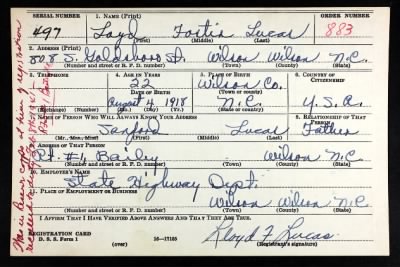 SERIAL NUMBER 1. NAME (Print) ORDER NUMBER
497 Loyd Foster Lucas 883
(First) (Middle) (Last)
2. ADDRESS (Print)
808 S. Goldsboro St. Wilson Wilson N.C.
(Number and street or R. F. D. number) (Town) (County) (State)
3. TELEPHONE 4. AGE IN YEARS 5. PLACE OF BIRTH 6. COUNTRY OF CITIZENSHIP
22 Wilson Co.
DATE OF BIRTH (Town or county)
August 4 1918 N.C. U.S.A.
(Exchange) (Number) (Mo.) (Day) (Yr.) (State or country)
7. NAME OF PERSON WHO WILL ALWAYS KNOW YOUR ADDRESS 8. RELATIONSHIP OF THAT PERSON
Sanford Lucas Father
(Mr., Mrs., Miss) (First) (Middle) (Last)
9. ADDRESS OF THAT PERSON
Rt. #1 Bailey Wilson N.C.
(Number and street or R. F. D. number) (Town) (County) (State)
10. EMPLOYER'S NAME
State Highway Dept.
11. PLACE OF EMPLOYMENT OR BUSINESS
Wilson Wilson N.C.
(Number and street or R. F. D. number) (Town) (County) (State)
I AFFIRM THAT I HAVE VERIFIED ABOVE ANSWERS AND THAT THEY ARE TRUE.
REGISTRATION CARD
D. S. S. Form 1 (over) 16—17105
Lloyd F Lucas
(Registrant's signature)